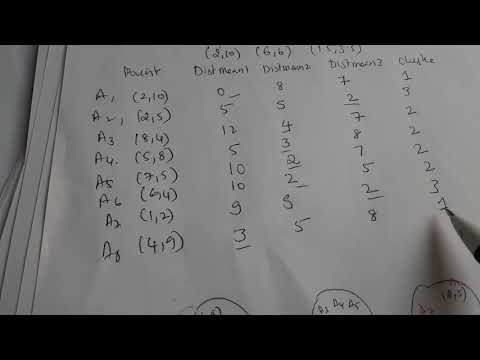 (2,10) (6,6) (1.5,3.5)
Point Distmean1 Distmean2 Distmean3 Cluster
A1 (2,10) 0 8 7 1
A2, (2,5) 5 5 2 3
A3 (8,4) 12 4 7 2
A4. (5,8) 5 3 8 2
A5 (7,5) 10 2 7 2
A6 (6,4) 10 2 5 2
A7 (1,2) 9 9 2 3
A8 (4,9) 3 5 8 1
A3 A4 A5